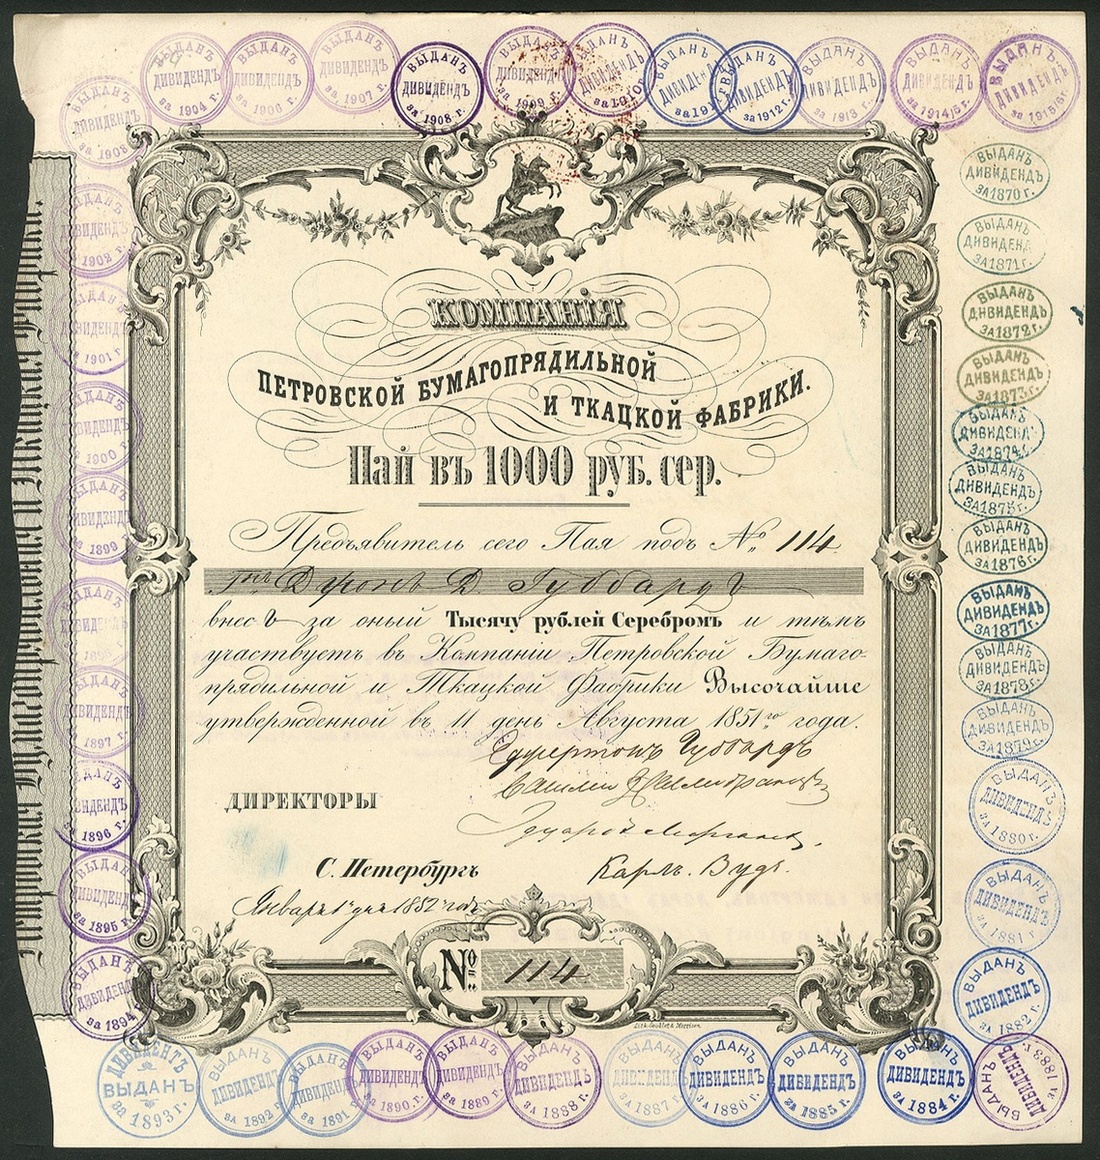 КОМПАНІЯ
ПЕТРОВСКОЙ БУМАГОПРЯДИЛЬНОЙ
И ТКАЦКОЙ ФАБРИКИ.
Пай въ 1000 руб. сер.
Предъявитель сего Пая подъ №. 114
Джонъ Д. Губбардъ
внесъ за оный Тысячу рублей Серебромъ и тѣмъ
участвуетъ въ Компаніи Петровской Бумаго-
прядильной и Ткацкой Фабрики Высочайше
утвержденной въ 11 день Августа 1851го года.
Еджертонъ Губбардъ
ДИРЕКТОРЫ
Эдуардъ Морганъ.
Карлъ Вудъ.
С. Петербургъ
Января 1 дня 1852 года
№ 114
ВЫДАНЪ ДИВИДЕНДЪ за 1904 г.
ВЫДАНЪ ДИВИДЕНДЪ за 1906 г.
ВЫДАНЪ ДИВИДЕНДЪ за 1907 г.
ВЫДАНЪ ДИВИДЕНДЪ за 1908 г.
ВЫДАНЪ ДИВИДЕНДЪ за 1909 г.
ВЫДАНЪ ДИВИДЕНДЪ
ВЫДАНЪ ДИВИДЕНДЪ
ВЫДАНЪ ДИВИДЕНДЪ за 1912 г.
ВЫДАНЪ ДИВИДЕНДЪ за 1913 г.
ВЫДАНЪ ДИВИДЕНДЪ за 1914/5 г.
ВЫДАНЪ ДИВИДЕНДЪ за 1915/6 г.
ВЫДАНЪ ДИВИДЕНДЪ ЗА 1870 г.
ВЫДАНЪ ДИВИДЕНДЪ ЗА 1871 г.
ВЫДАНЪ ДИВИДЕНДЪ ЗА 1872 г.
ВЫДАНЪ ДИВИДЕНДЪ ЗА 1873 г.
ВЫДАНЪ ДИВИДЕНДЪ ЗА 1874 г.
ВЫДАНЪ ДИВИДЕНДЪ ЗА 1875 г.
ВЫДАНЪ ДИВИДЕНДЪ ЗА 1876 г.
ВЫДАНЪ ДИВИДЕНДЪ ЗА 1877 г.
ВЫДАНЪ ДИВИДЕНДЪ ЗА 1878 г.
ВЫДАНЪ ДИВИДЕНДЪ ЗА 1879 г.
ВЫДАНЪ ДИВИДЕНДЪ за 1880 г.
ВЫДАНЪ ДИВИДЕНДЪ за 1881 г.
ВЫДАНЪ ДИВИДЕНДЪ за 1882 г.
ВЫДАНЪ ДИВИДЕНДЪ за 1883 г.
ВЫДАНЪ ДИВИДЕНДЪ за 1884 г.
ВЫДАНЪ ДИВИДЕНДЪ за 1885 г.
ВЫДАНЪ ДИВИДЕНДЪ за 1886 г.
ВЫДАНЪ ДИВИДЕНДЪ за 1887 г.
ВЫДАНЪ ДИВИДЕНДЪ за 1888 г.
ВЫДАНЪ ДИВИДЕНДЪ за 1889 г.
ВЫДАНЪ ДИВИДЕНДЪ за 1890 г.
ВЫДАНЪ ДИВИДЕНДЪ за 1891 г.
ВЫДАНЪ ДИВИДЕНДЪ за 1892 г.
ДИВИДЕНТЪ ВЫДАНЪ за 1893 г.
ВЫДАНЪ ДИВИДЕНДЪ за 1894 г.
ВЫДАНЪ ДИВИДЕНДЪ за 1895 г.
ВЫДАНЪ ДИВИДЕНДЪ за 1896 г.
ВЫДАНЪ ДИВИДЕНДЪ за 1897 г.
ВЫДАНЪ ДИВИДЕНДЪ
ВЫДАНЪ ДИВИДЕНДЪ за 1899 г.
ВЫДАНЪ ДИВИДЕНДЪ за 1900 г.
ВЫДАНЪ ДИВИДЕНДЪ за 1901 г.
ВЫДАНЪ ДИВИДЕНДЪ
ВЫДАНЪ ДИВИДЕНДЪ